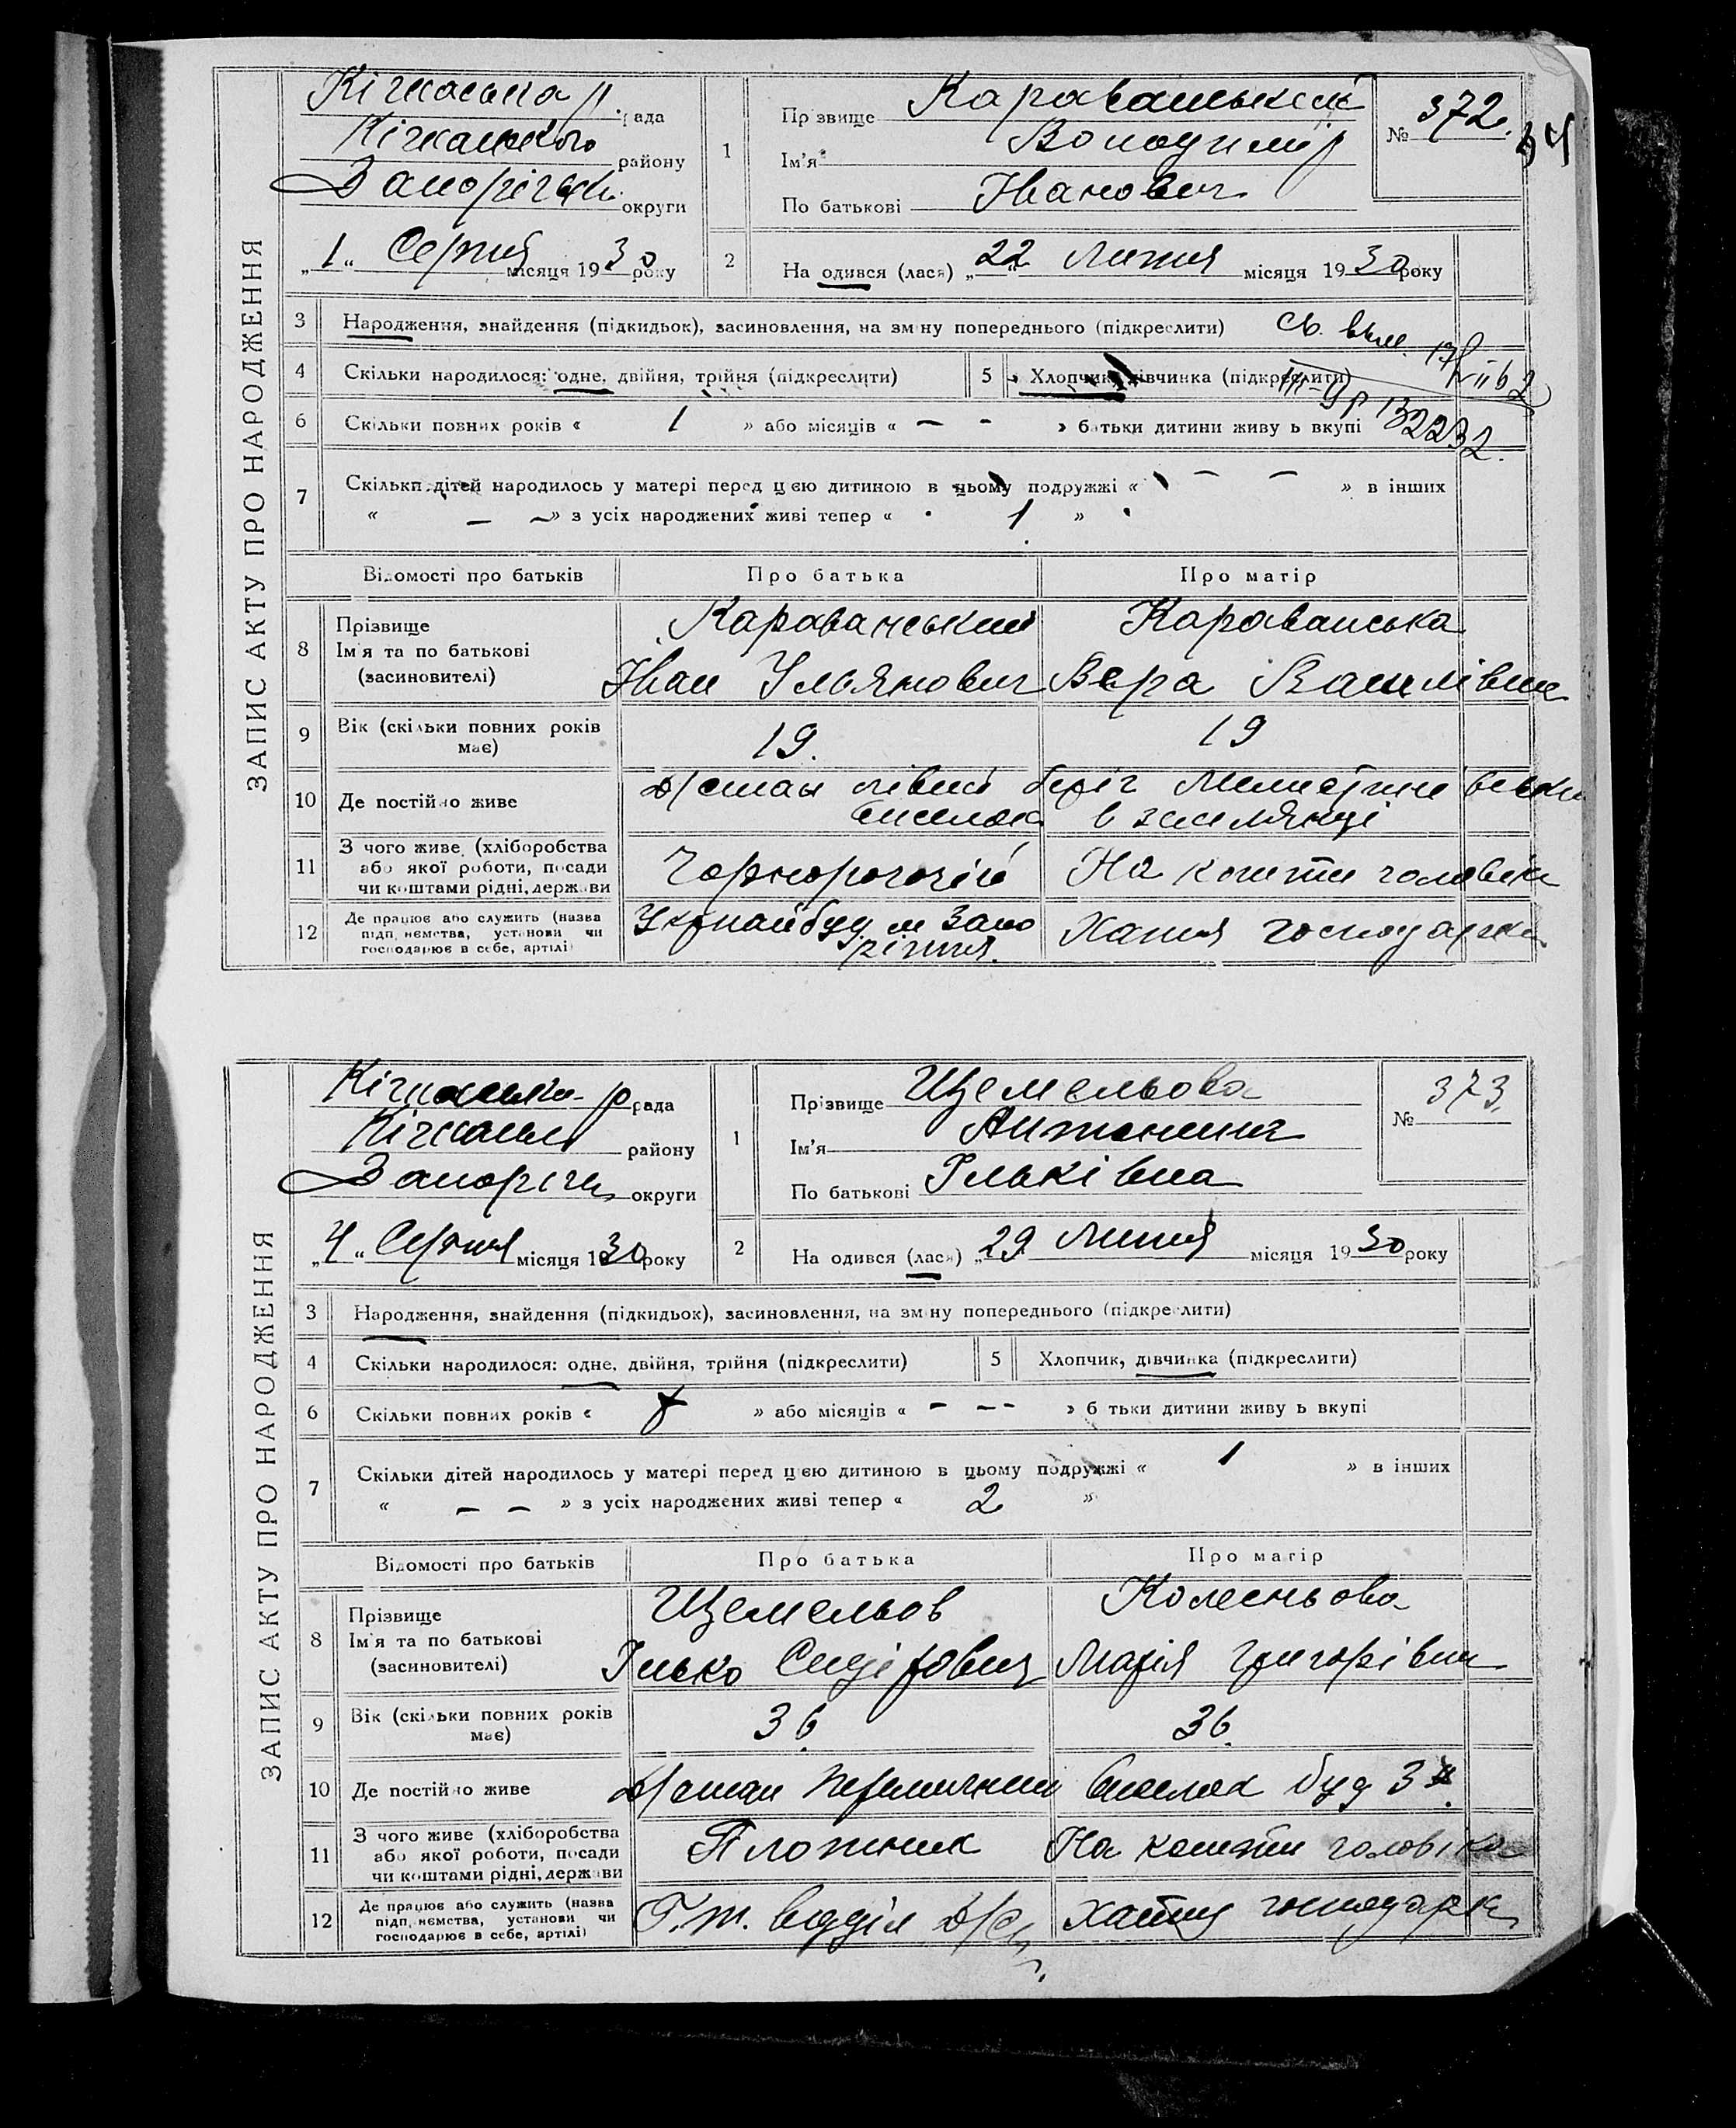 ЗАПИС АКТУ ПРО НАРОДЖЕННЯ
Кічкаська р. рада
Кічкаського району
Запоріськ. округи
„1“ Серпня місяця 1930 року
1
Прізвище Караванський
Ім'я Володимір
По батькові Іванович
№ 372.
34
2
Народився (лася) „22“ Липня місяця 1930 року
3 Народження, знайдення (підкидьок), засиновлення, на зміну попереднього (підкреслити)
4 Скільки народилося: одне, двійня, трійня (підкреслити)
5 Хлопчик, дівчинка (підкреслити)
6 Скільки повних років « 1 » або місяців « – – » батьки дитини живуть вкупі
7 Скільки дітей народилось у матері перед цією дитиною в цьому подружжі « – – » в інших
« – – » з усіх народжених живі тепер « 1 »
Відомості про батьків Про батька Про матір
8 Прізвище
Ім'я та по батькові
(засиновителі)
Караванський
Іван Ульянович
Караванська
Вера Василівна
9 Вік (скільки повних років має)
19.
19
10 Де постійно живе
лівий беріг
виселок в землянці
11 З чого живе (хліборобства
або якої роботи, посади
чи коштами рідні, держави
Чорноробочій
На кошти чоловіка
12 Де працює або служить (назва
підприємства, установи чи
господарює в себе, артілі)
м Запоріжжя.
Хатня господарка
ЗАПИС АКТУ ПРО НАРОДЖЕННЯ
Кічкаська р рада
Кічкаськ району
Запорізьк округи
„4“ Серпня місяця 1930 року
1
Прізвище Щемельова
Ім'я Антонина
По батькові Ільківна
№ 373.
2
Народився (лася) „29 Липня місяця 1930 року
3 Народження, знайдення (підкидьок), засиновлення, на зміну попереднього (підкреслити)
4 Скільки народилося: одне, двійня, трійня (підкреслити)
5 Хлопчик, дівчинка (підкреслити)
6 Скільки повних років « » або місяців « – – – » батьки дитини живуть вкупі
7 Скільки дітей народилось у матері перед цією дитиною в цьому подружжі « 1 » в інших
« – – » з усіх народжених живі тепер « 2 »
Відомості про батьків Про батька Про матір
8 Прізвище
Ім'я та по батькові
(засиновителі)
Щемельов
Ілько
Колесньова
Марія Григорівна
9 Вік (скільки повних років має)
36
36.
10 Де постійно живе
виселок буд 3
11 З чого живе (хліборобства
або якої роботи, посади
чи коштами рідні, держави
Плотник
На кошти чоловіка
12 Де працює або служить (назва
підприємства, установи чи
господарює в себе, артілі)
відділ
хатня господарка